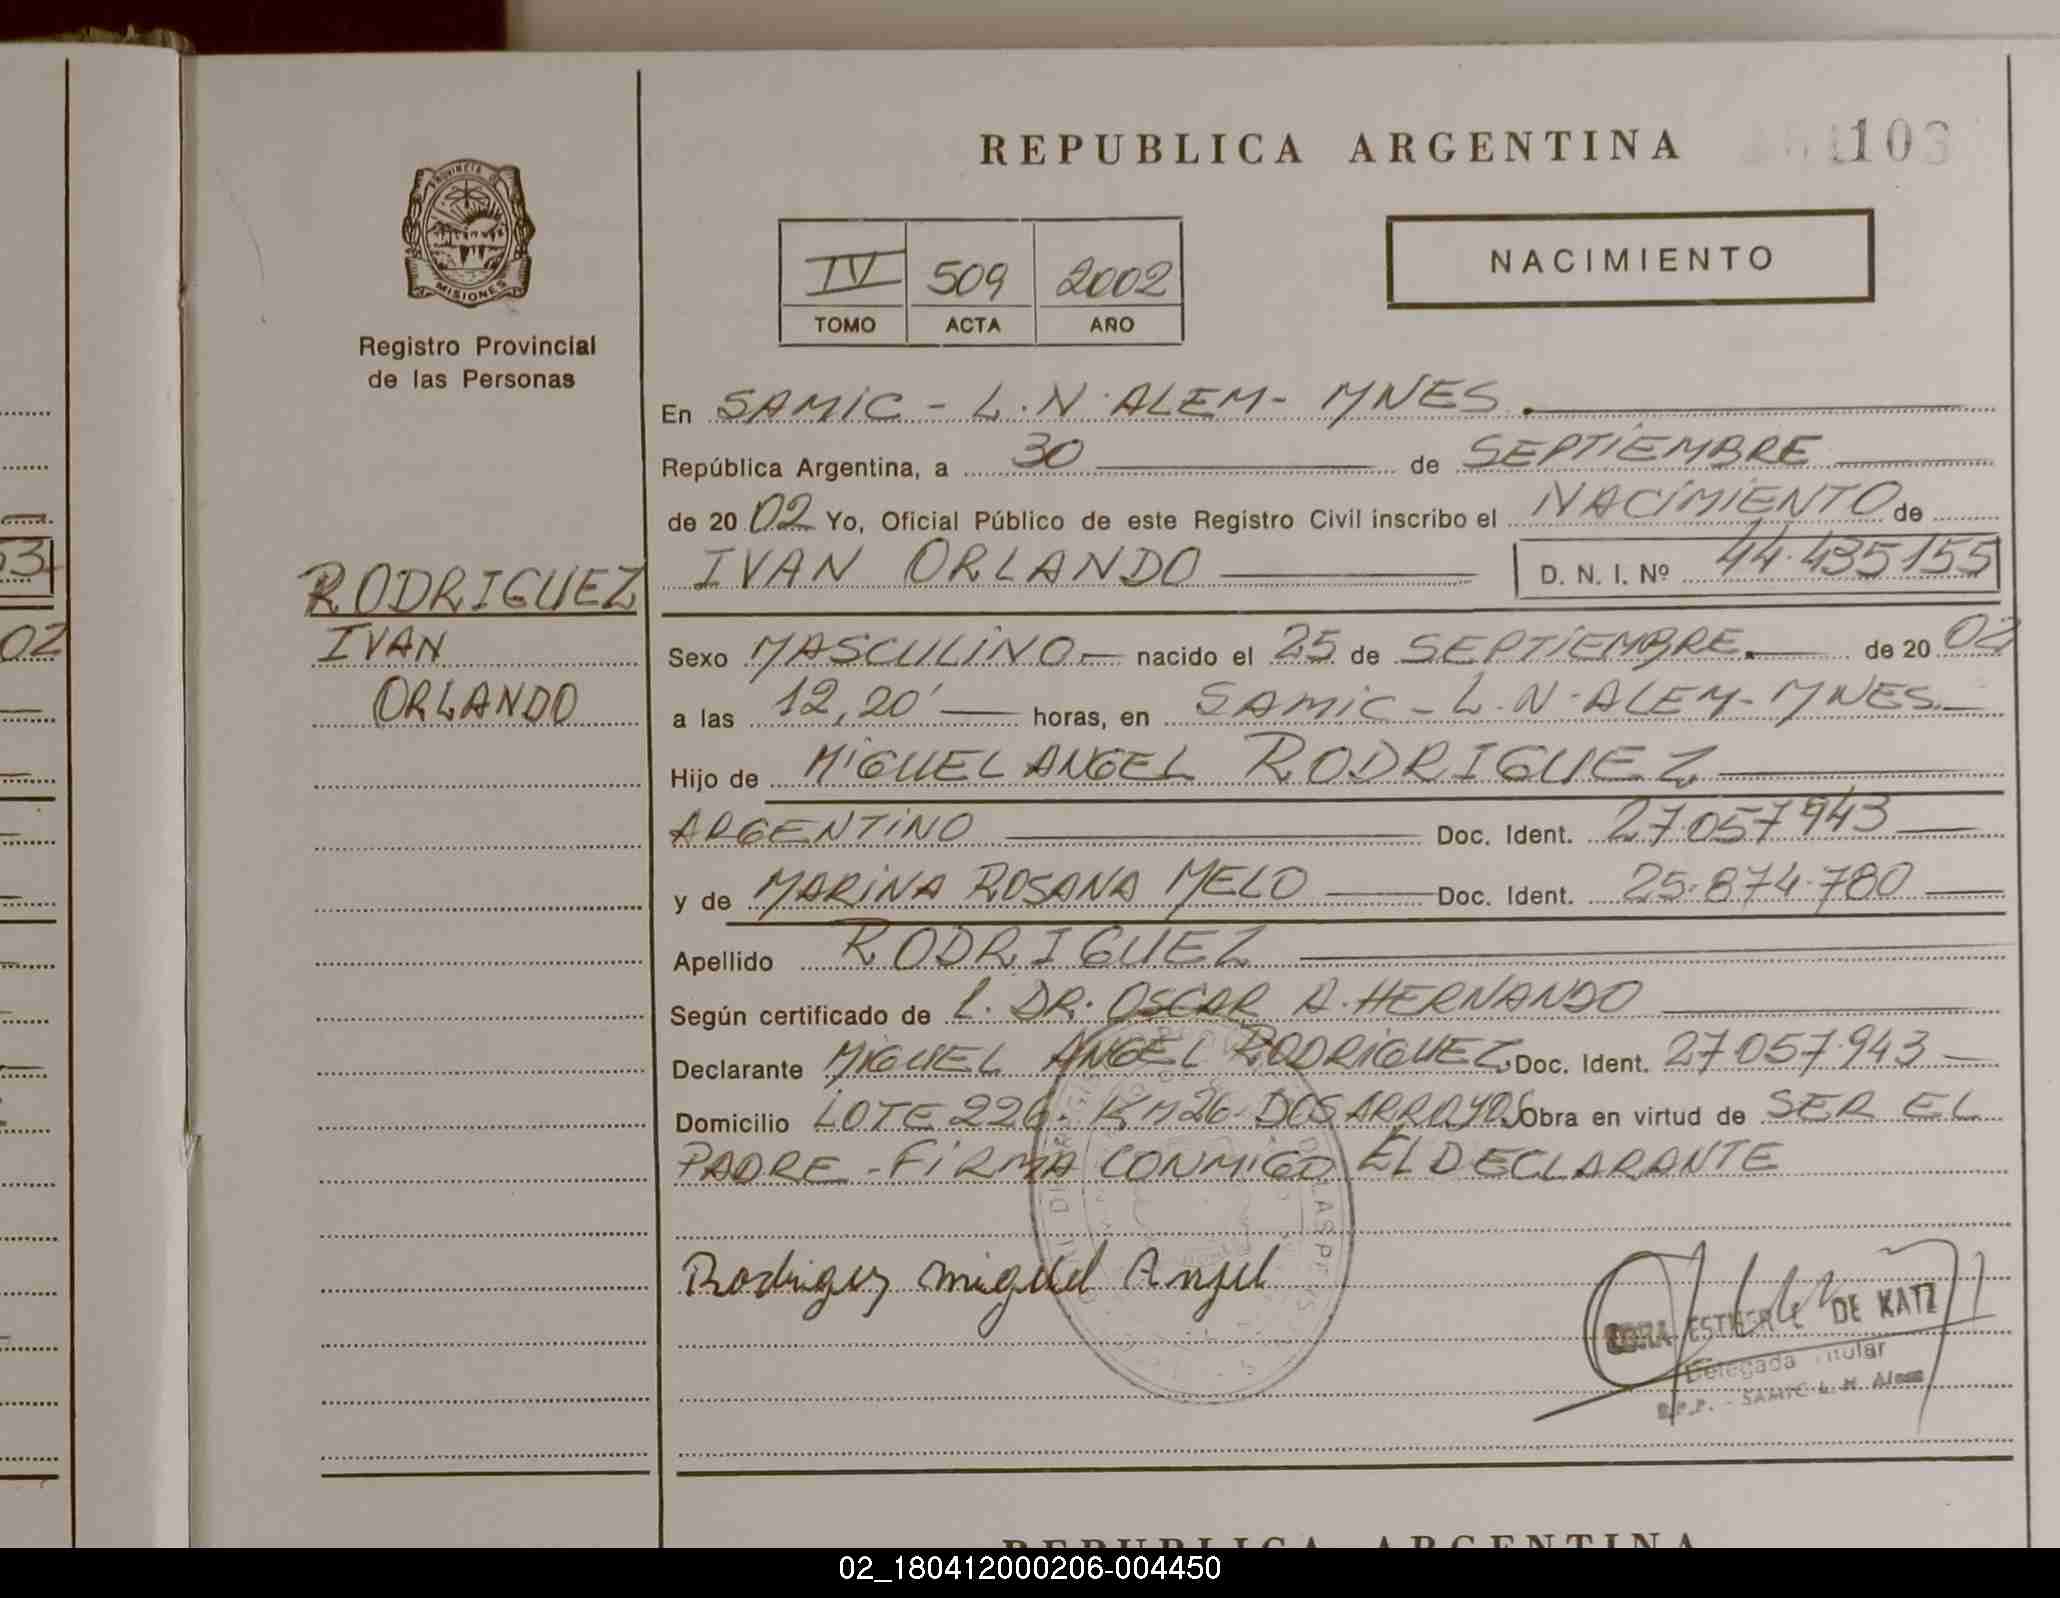 REPUBLICA ARGENTINA 103
PROVINCIA DE
MISIONES
Registro Provincial
de las Personas
IV 509 2002
TOMO ACTA AÑO
NACIMIENTO
En SAMIC - L.N. ALEM - MNES.
República Argentina, a 30 de SEPTIEMBRE
de 2002 Yo, Oficial Público de este Registro Civil inscribo el NACIMIENTO de
IVAN ORLANDO D. N. I. Nº 44.435155
RODRIGUEZ
IVAN
ORLANDO
Sexo MASCULINO nacido el 25 de SEPTIEMBRE de 2002
a las 12,20' horas, en SAMIC - L.N. ALEM - MNES.
Hijo de MIGUEL ANGEL RODRIGUEZ
ARGENTINO Doc. Ident. 27.057.943
y de MARINA ROSANA MELO Doc. Ident. 25.874.780
Apellido RODRIGUEZ
Según certificado de L. DR. OSCAR A. HERNANDO
Declarante MIGUEL ANGEL RODRIGUEZ Doc. Ident. 27.057.943
Domicilio LOTE 226. KM 26. DOS ARROYOS Obra en virtud de SER EL
PADRE - FIRMA CONMIGO EL DECLARANTE
Rodriguez miguel Angel
ESTHER DE KATZ
Delegada Titular
R.P.P. - SAMIC L. N. Alem
REPUBLICA ARGENTINA
02_180412000206-004450